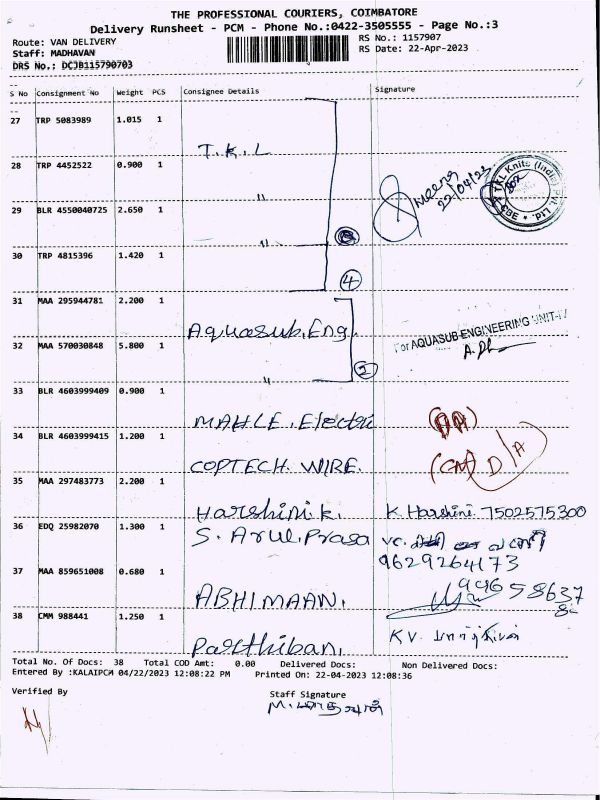 THE PROFESSIONAL COURIERS, COIMBATORE
Delivery Runsheet - PCM - Phone No.:0422-3505555 - Page No.:3
Route: VAN DELIVERY
RS No.: 1157907
Staff: MADHAVAN
RS Date: 22-Apr-2023
DRS No.: DCJB115790703
S No Consignment No Weight PCS Consignee Details Signature
27 TRP 5083989 1.015 1
T.K.L
28 TRP 4452522 0.900 1 "
Meena 22/04/23
TKL Knits (India) Pvt. Ltd. * CBE
29 BLR 4550040725 2.650 1 "
30 TRP 4815396 1.420 1
4
31 MAA 295944781 2.200 1
Aquasub.Eng.
For AQUASUB ENGINEERING UNIT-IV
32 MAA 570030848 5.800 1 "
2
33 BLR 4603999409 0.900 1
MAHLE.Electri
34 BLR 4603999415 1.200 1
COPTECH. WIRE.
D/A
35 MAA 297483773 2.200 1
Harshini k. K. Harshini. 7502575300
36 EDQ 25982070 1.300 1
S. Arul.Prasa
9629264173
37 MAA 859651008 0.680 1
ABHIMAAN.
38 CMM 988441 1.250 1
Parthiban.
KV.
Total No. Of Docs: 38 Total COD Amt: 0.00 Delivered Docs: Non Delivered Docs:
Entered By :KALAIPCM 04/22/2023 12:08:22 PM Printed On: 22-04-2023 12:08:36
Verified By
Staff Signature
M. மாதவன்